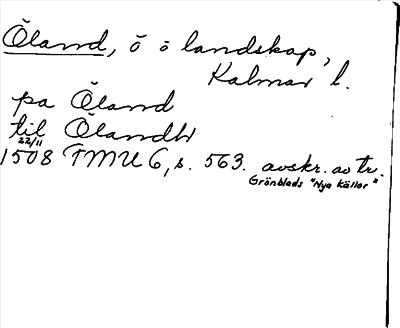 Öland, ö o landskap,
Kalmar l.
pa Öland
til Ölandh
22/11
1508 FMU 6, s. 563. avskr. av tr.
Grönblads "Nya källor"